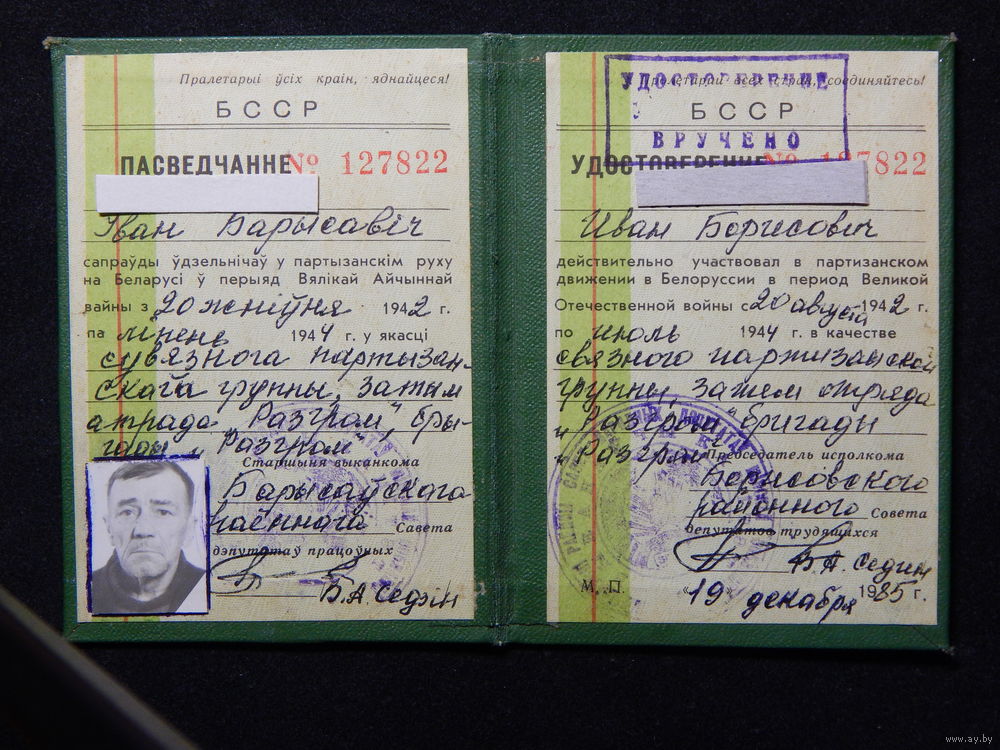 Пралетарыі ўсіх краін, яднайцеся!
БССР
ПАСВЕДЧАННЕ № 127822
Іван Барысавіч
сапраўды ўдзельнічаў у партызанскім руху
на Беларусі ў перыяд Вялікай Айчыннай
вайны з 20 жніўня 1942 г.
па ліпень 1944 г. у якасці
сувязнога партызан-
скай групы, затым
атрада "Разгром", бры-
гады "Разгром"
Старшыня выканкома
Барысаўскага
раённага Савета
дэпутатаў працоўных
Б.А. Седзін
Пролетарии всех стран, соединяйтесь!
УДОСТОВЕРЕНИЕ
ВРУЧЕНО
БССР
УДОСТОВЕРЕНИЕ № 127822
Иван Борисович
действительно участвовал в партизанском
движении в Белоруссии в период Великой
Отечественной войны с 20 августа 1942 г.
по июль 1944 г. в качестве
связного партизанской
группы, затем отряда
"Разгром" бригады
"Разгром"
Председатель исполкома
Борисовского
районного Совета
депутатов трудящихся
Б.А. Седин
М. П. «19 декабря 1985 г.
www.ay.by